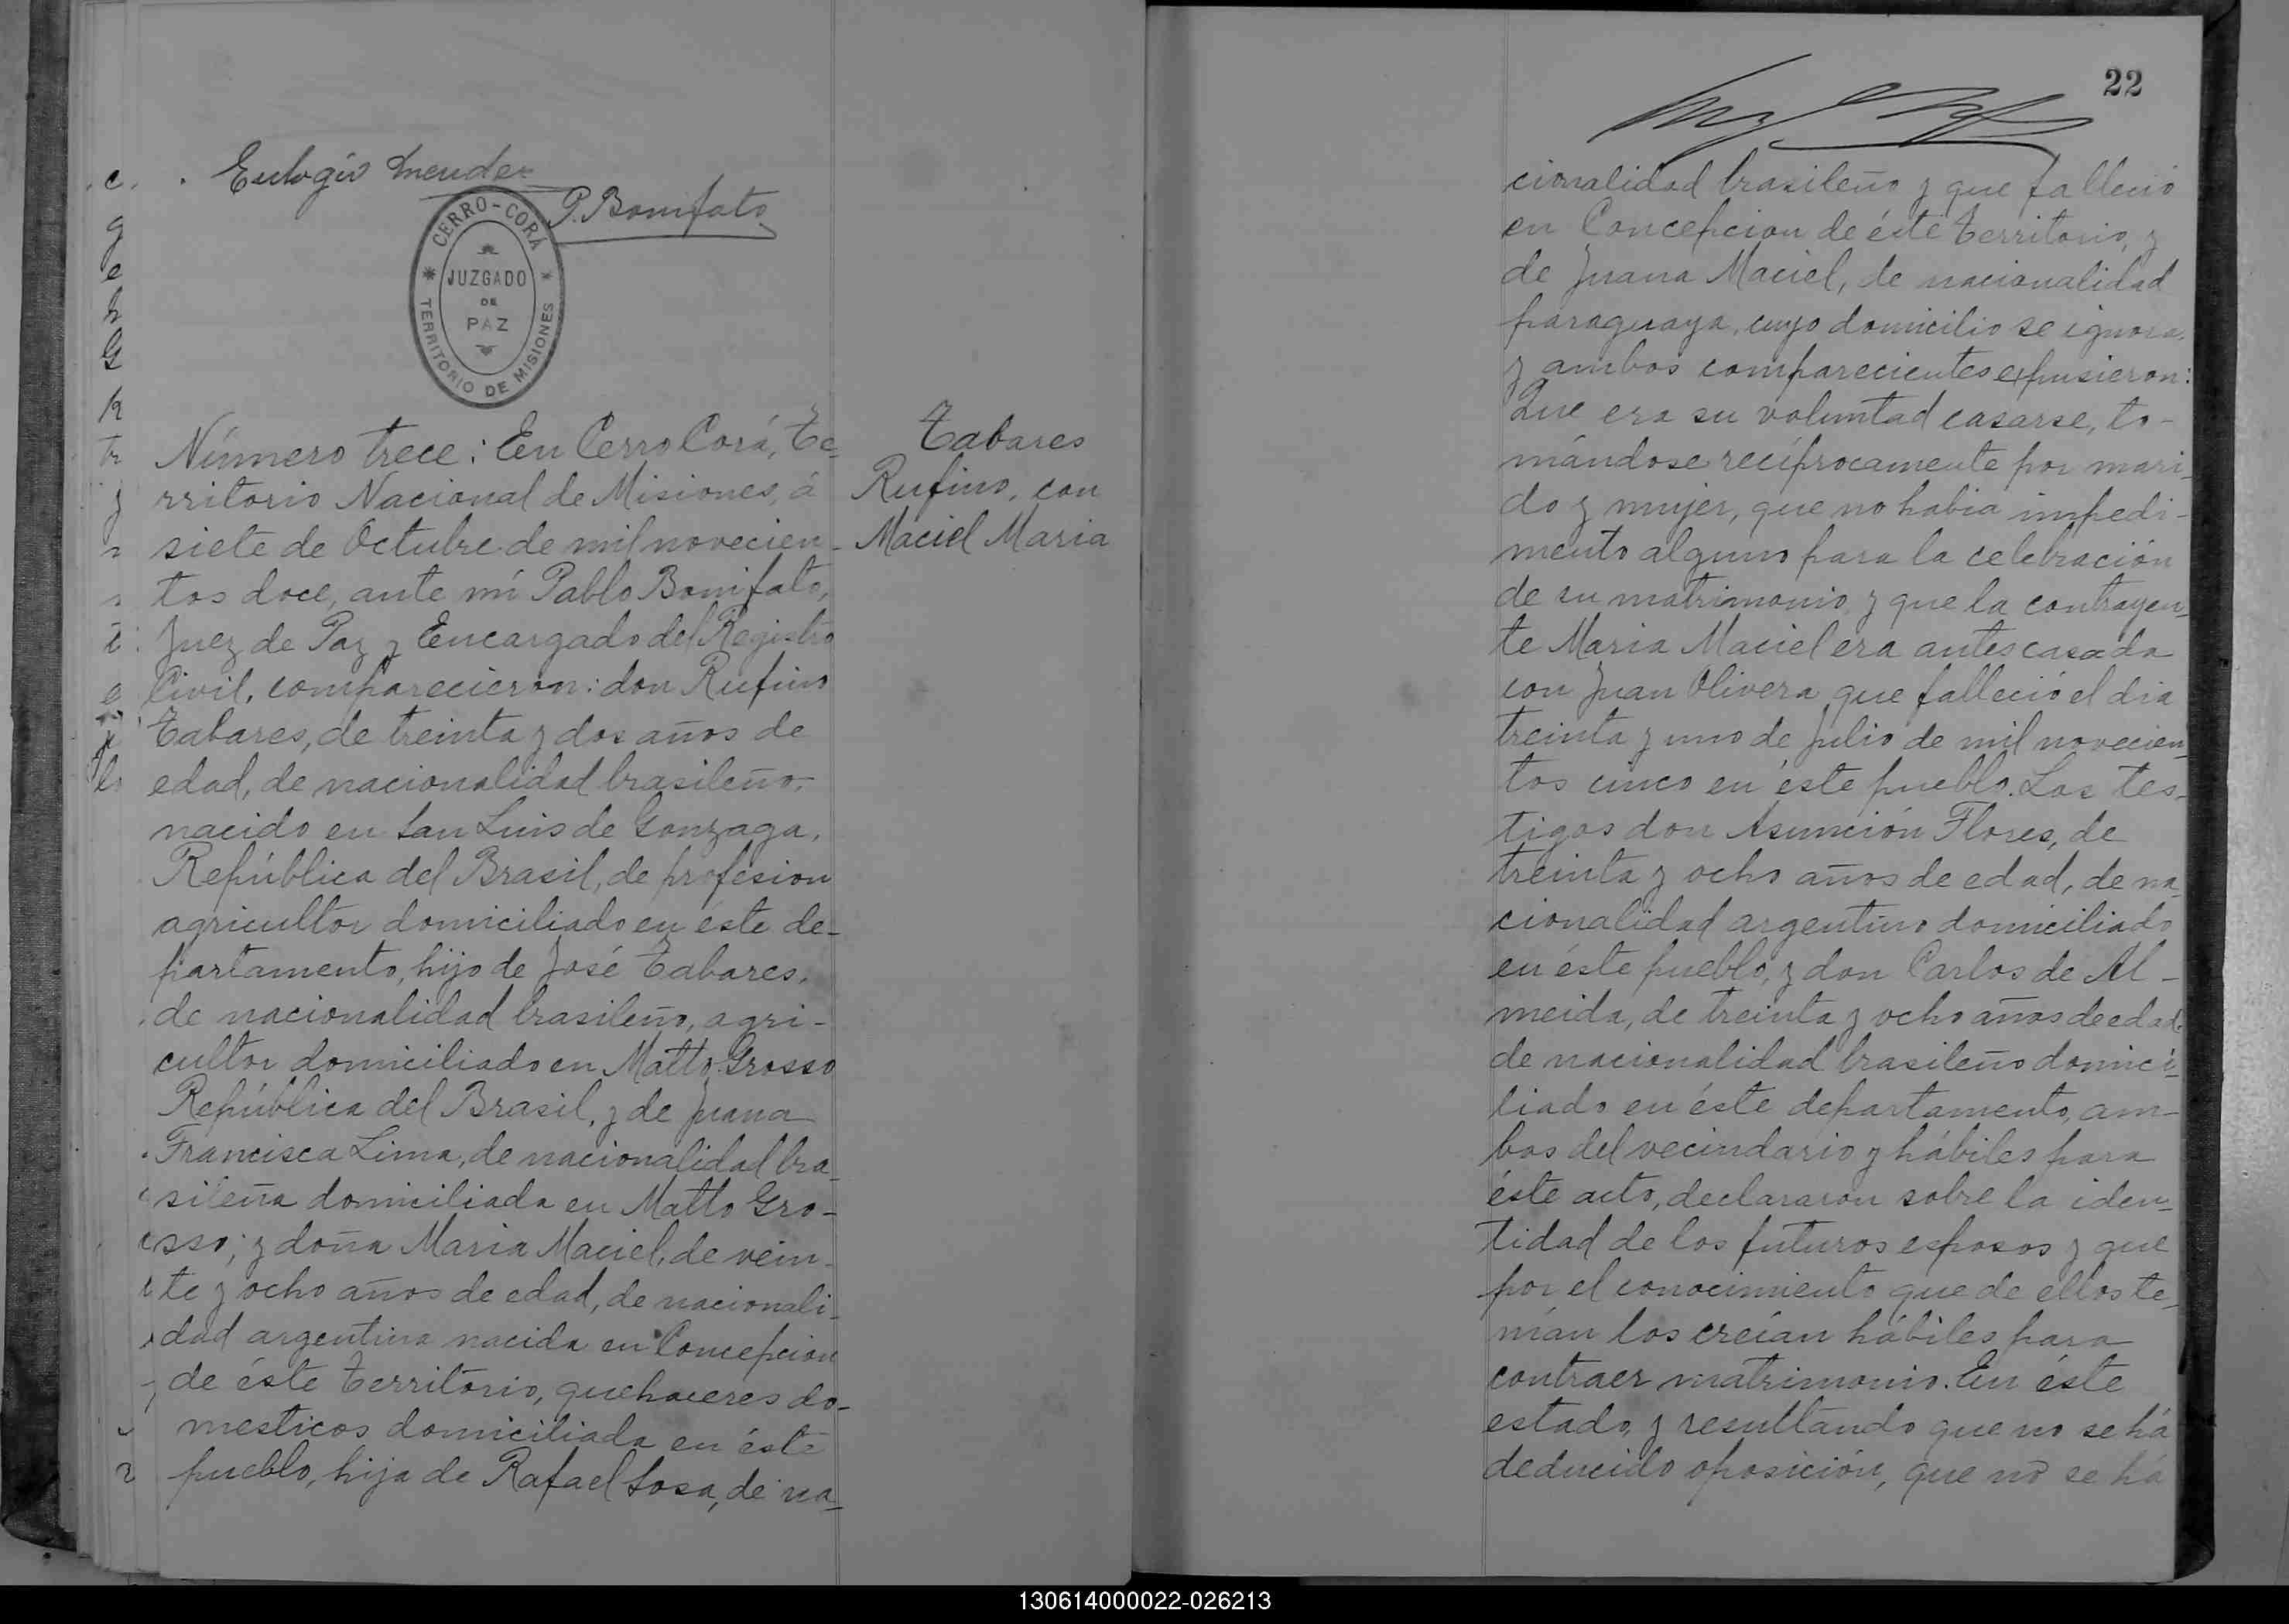 Eulogio Mendez
P. Bonifato
CERRO-CORÁ
JUZGADO
DE
PAZ
TERRITORIO DE MISIONES
Tabares
Rufino, con
Maciel Maria
Número trece: En Cerro Corá, Te-
rritorio Nacional de Misiones, á
siete de Octubre de mil novecien-
tos doce, ante mí Pablo Bonifato,
Juez de Paz y Encargado del Registro
Civil, comparecieron: don Rufino
Tabares, de treinta y dos años de
edad, de nacionalidad brasileño,
nacido en San Luis de Gonzaga,
República del Brasil, de profesion
agricultor domiciliado en éste de-
partamento, hijo de José Tabares,
de nacionalidad brasileño, agri-
cultor domiciliado en Matto Grosso
República del Brasil, y de Juana
Francisca Lima, de nacionalidad bra-
sileña domiciliada en Matto Gro-
sso; y doña Maria Maciel, de vein-
te y ocho años de edad, de nacionali-
dad argentina nacida en Concepcion
de éste Territorio, quehaceres do-
mesticos domiciliada en éste
pueblo, hija de Rafael Sosa, de na-
22
cionalidad brasileño y que falleció
en Concepcion de éste Territorio, y
de Juana Maciel, de nacionalidad
paraguaya, cuyo domicilio se ignora,
y ambos comparecientes expusieron:
Que era su voluntad casarse, to-
mándose recíprocamente por mari-
do y mujer, que no habia impedi-
mento alguno para la celebración
de su matrimonio y que la contrayen-
te Maria Maciel era antes casada
con Juan Olivera que falleció el dia
treinta y uno de Julio de mil novecien-
tos cinco en éste pueblo. Los tes-
tigos don Asunción Flores, de
treinta y ocho años de edad, de na-
cionalidad argentino domiciliado
en éste pueblo, y don Carlos de Al-
meida, de treinta y ocho años de edad,
de nacionalidad brasileño domici-
liado en éste departamento, am-
bos del vecindario y hábiles para
éste acto, declararon sobre la iden-
tidad de los futuros esposos y que
por el conocimiento que de ellos te-
nían los creían hábiles para
contraer matrimonio. En éste
estado, y resultando que no se há
deducido oposición, que no se há
130614000022-026213